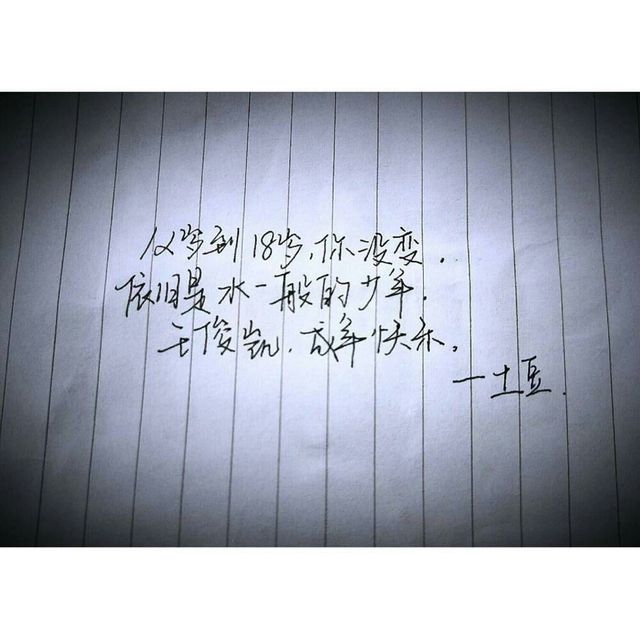 12岁到18岁,你没变.
依旧是水一般的少年.
王俊凯.成年快乐.
一土豆.